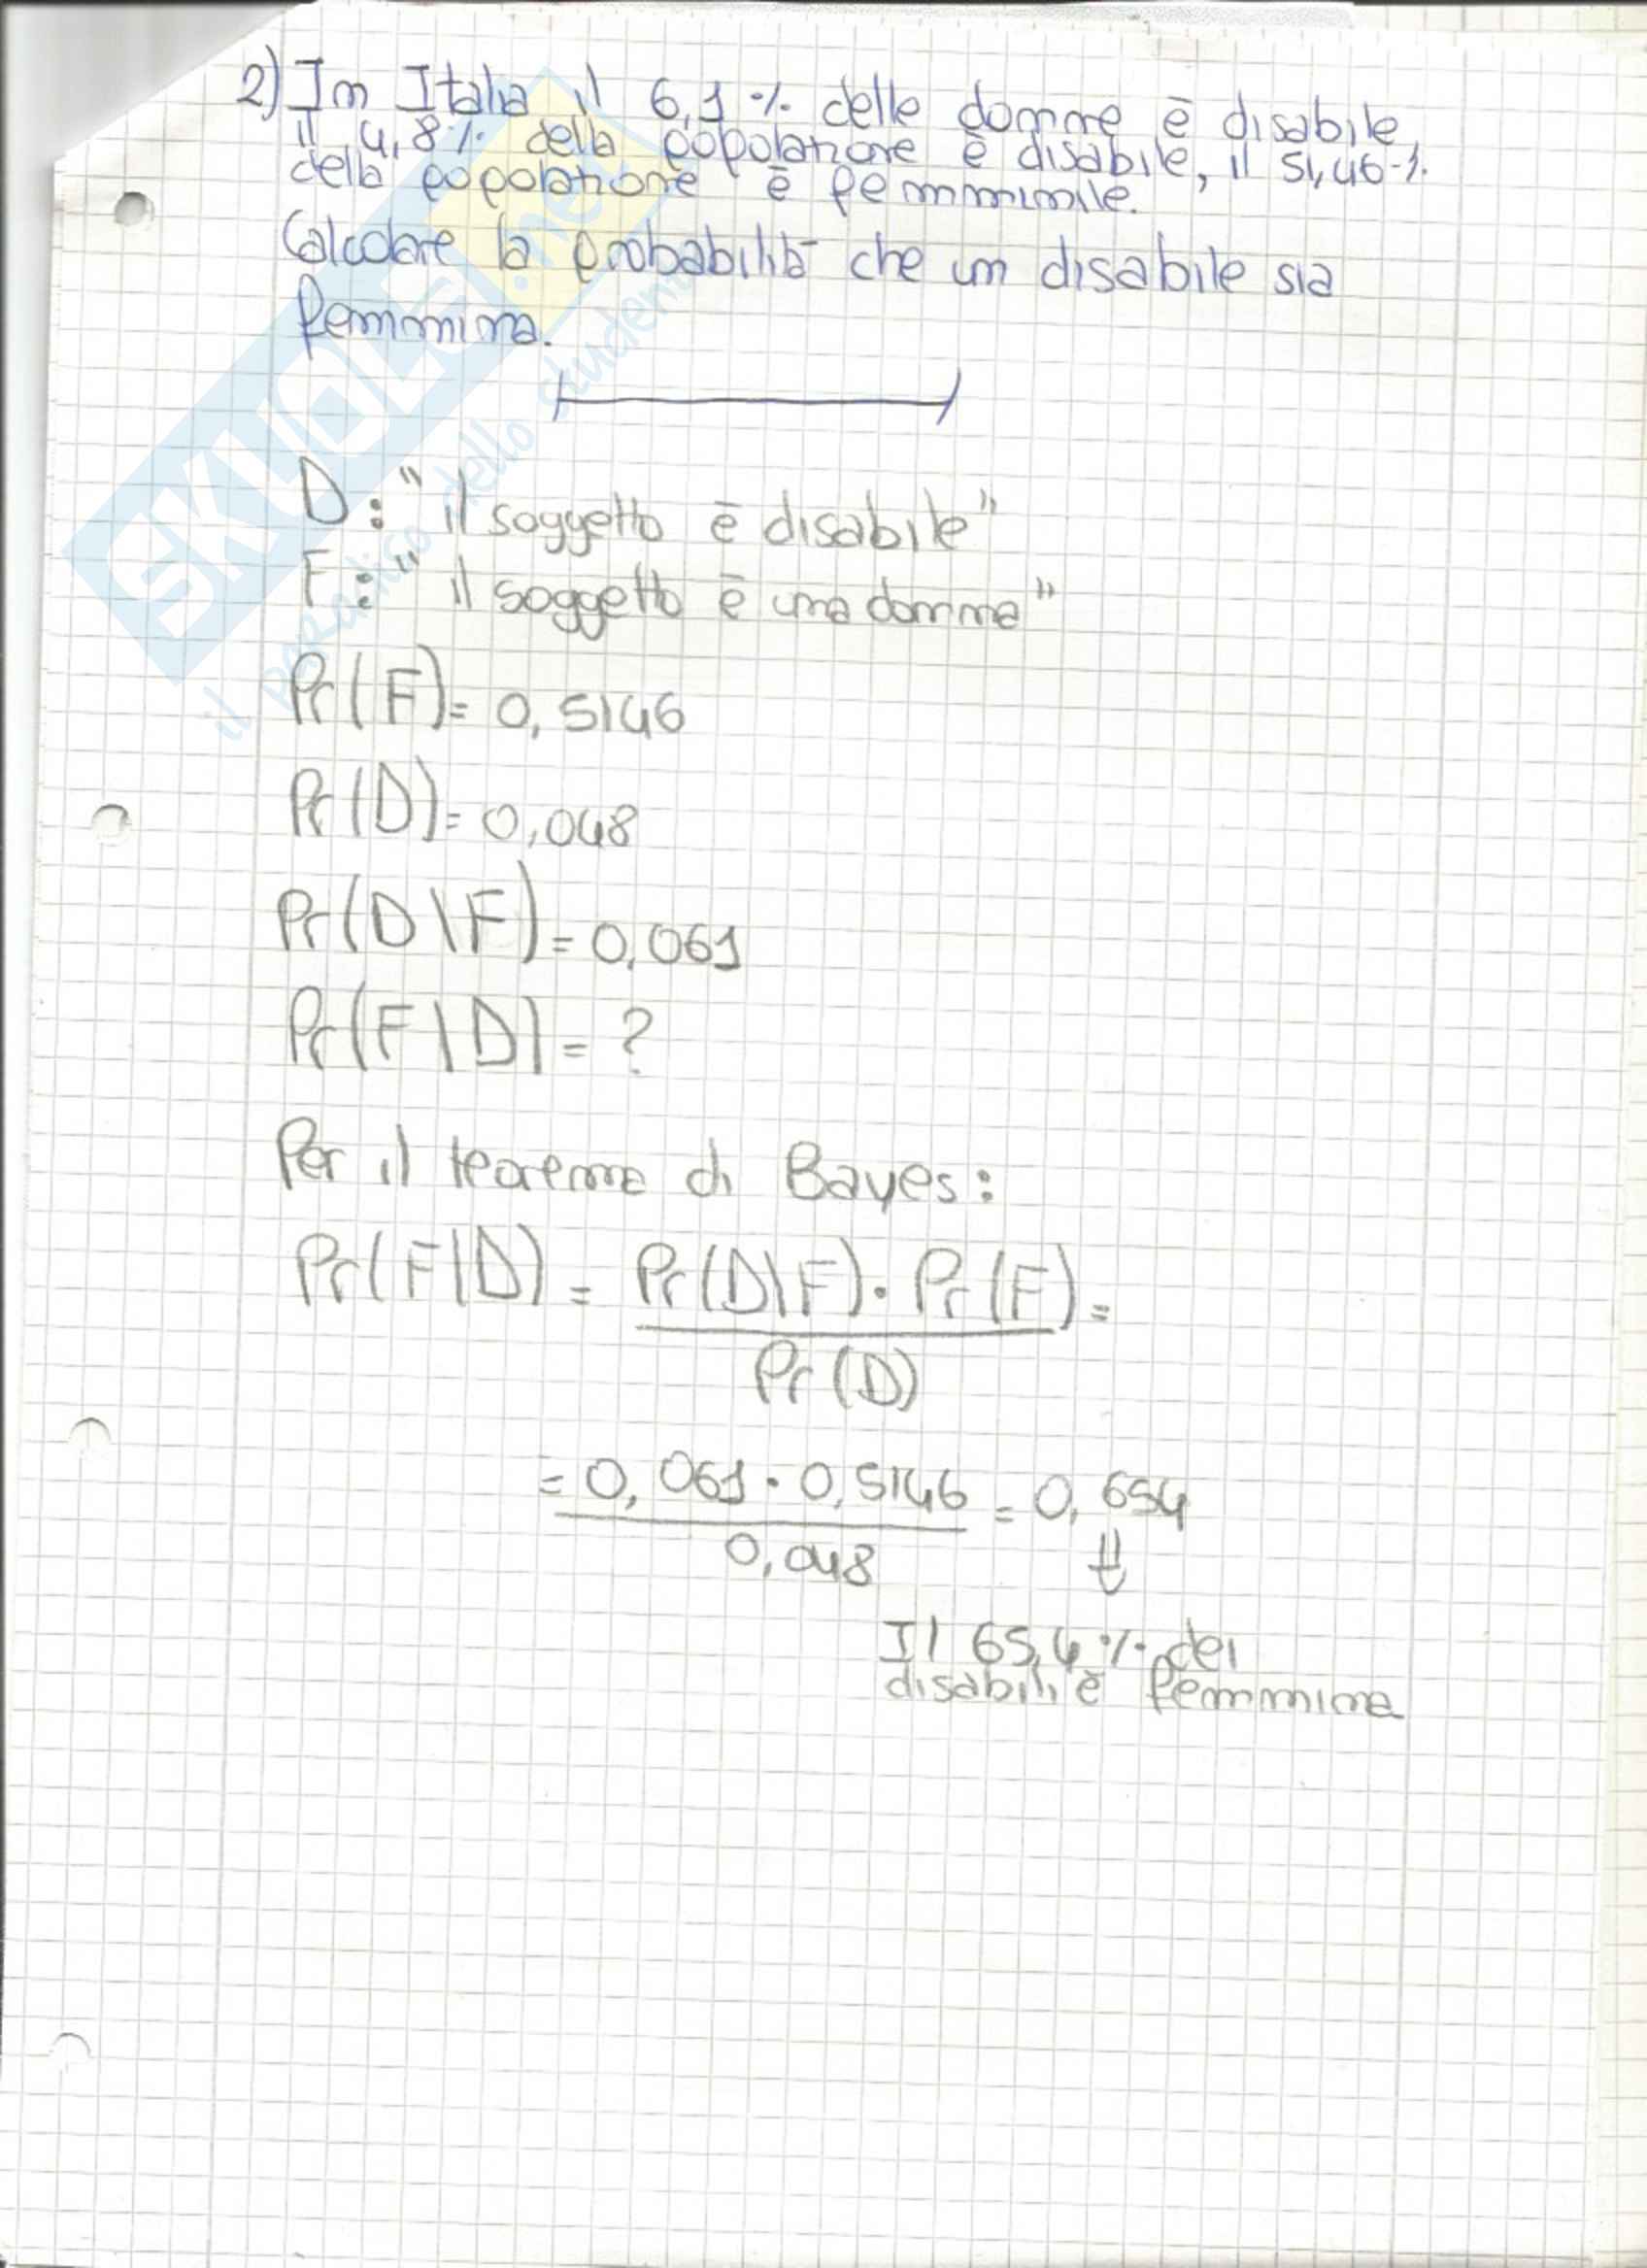 2) In Italia il 6,1 % delle donne è disabile,
il 4,8% della popolazione è disabile, il 51,46%
della popolazione è femminile.
Calcolare la probabilità che un disabile sia
femmina.
D: "il soggetto è disabile"
F: "il soggetto è una donna"
Pr(F) = 0,5146
Pr(D) = 0,048
Pr(D\F) = 0,061
Pr(F|D) = ?
Per il teorema di Bayes:
Pr(F|D) = Pr(D\F) · Pr(F) =
Pr(D)
= 0,061 · 0,5146 = 0,654
0,048
Il 65,4 % dei
disabili è femmina
SKUOLA.net
il paradiso dello studente